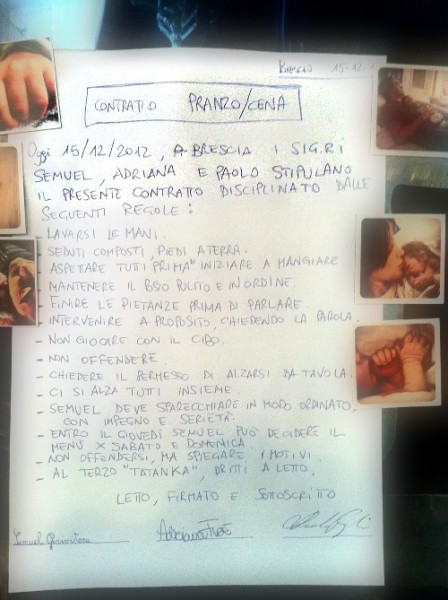 BRESCIA 15-12
CONTRATTO PRANZO/CENA
Oggi 15/12/2012, A BRESCIA I SIG.RI
SEMUEL, ADRIANA E PAOLO STIPULANO
IL PRESENTE CONTRATTO DISCIPLINATO DALLE
SEGUENTI REGOLE:
- LAVARSI LE MANI.
- SEDUTI COMPOSTI, PIEDI A TERRA.
- ASPETTARE TUTTI PRIMA INIZIARE A MANGIARE
- MANTENERE IL POSTO PULITO E IN ORDINE.
- FINIRE LE PIETANZE PRIMA DI PARLARE.
- INTERVENIRE A PROPOSITO, CHIEDENDO LA PAROLA.
- NON GIOCARE CON IL CIBO.
- NON OFFENDERE.
- CHIEDERE IL PERMESSO DI ALZARSI DA TAVOLA.
- CI SI ALZA TUTTI INSIEME.
- SEMUEL DEVE SPARECCHIARE IN MODO ORDINATO,
CON IMPEGNO E SERIETÀ.
- ENTRO IL GIOVEDÌ SEMUEL PUÒ DECIDERE IL
MENÙ X SABATO E DOMENICA
- NON OFFENDERSI, MA SPIEGARE I MOTIVI.
- AL TERZO "TATANKA", DRITTI A LETTO.
LETTO, FIRMATO E SOTTOSCRITTO
Semuel
Adriana